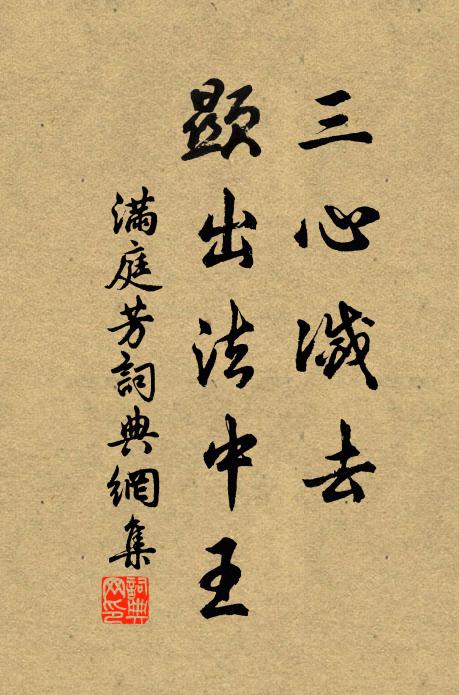 三心滅去
顯出法中王
滿庭芳詞典網集
詞典
网印